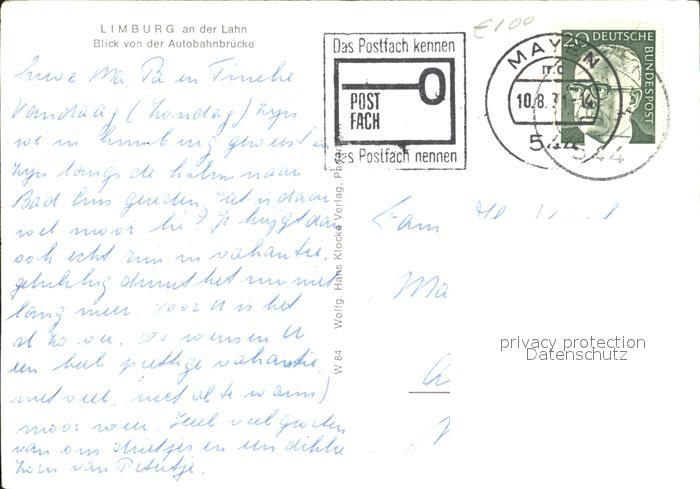 LIMBURG an der Lahn
Blick von der Autobahnbrücke
Lieve Ma Pa en Tineke
Vandaag (Zondag) zijn
we in Limburg geweest en
zijn langs de Lahn naar
Bad Ems gereden. Het is daar
wel mooi hè? Je krijgt dan
ook echt zin in vakantie.
gelukkig duurt het nu niet
lang meer. Voor U is het
al zover. We wensen U
een heel prettige vakantie,
met veel, niet al te warm)
mooi weer. Heel veel groeten
van ons drietjes en een dikke
zoen van Petertje.
W 84 Wolfg. Hans Klocke Verlag,
Das Postfach kennen
POST
FACH
das Postfach nennen
€1.00
MAYEN
10.8.71
544
20 DEUTSCHE
BUNDESPOST
544
Fam
Ma
privacy protection
Datenschutz